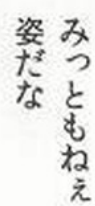 みっともねぇ
姿だな